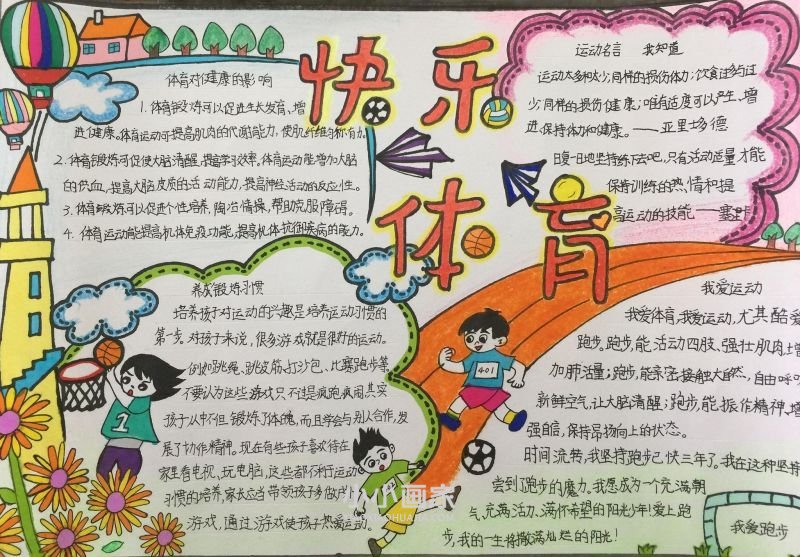 快乐
体育
体育对健康的影响
1. 体育锻炼可以促进生长发育、增
进健康。体育运动可提高肌肉的代谢能力,使肌纤维匀称有力。
2. 体育锻炼可促使大脑清醒,提高学习效率。体育运动能增加大脑
的供血,提高大脑皮质的活动能力,提高神经活动的反应性。
3. 体育锻炼可以促进个性培养,陶冶情操,帮助克服障碍。
4. 体育运动能提高机体免疫功能,提高机体抗御疾病的能力。
运动名言 我知道
运动太多和太少,同样的损伤体力;饮食过多与过
少,同样的损伤健康;唯有适度可以产生、增
进、保持体力和健康。——亚里士多德
日复一日地坚持练下去吧,只有活动适量才能
保持训练的热情和提
高运动的技能——塞
养成锻炼习惯
培养孩子对运动的兴趣是培养运动习惯的
第一步,对孩子来说,很多游戏就是很好的运动。
例如跳绳、跳皮筋、打沙包、比赛跑步等
不要认为这些游戏只不过是疯跑疯闹,其实
孩子从中不但锻炼了体魄,而且学会与别人合作,发
展了协作精神。现在有些孩子喜欢待在
家里看电视、玩电脑,这些都不利于运动
习惯的培养,家长应当带领孩子多做户
游戏,通过游戏使孩子热爱运动
我爱运动
我爱体育,我爱运动,尤其酷爱
跑步。跑步,能活动四肢、强壮肌肉、增
加肺活量;跑步,能亲密接触大自然,自由呼
新鲜空气,让大脑清醒;跑步,能振作精神、增
强自信,保持昂扬向上的状态。
时间流转,我坚持跑步已快三年了。我在这种坚持
尝到了跑步的魔力。我愿成为一个充满朝
气、充满活力、满怀希望的阳光少年!爱上跑
步,我的一生将撒满灿烂的阳光!
我爱跑步
1
401
小小画家